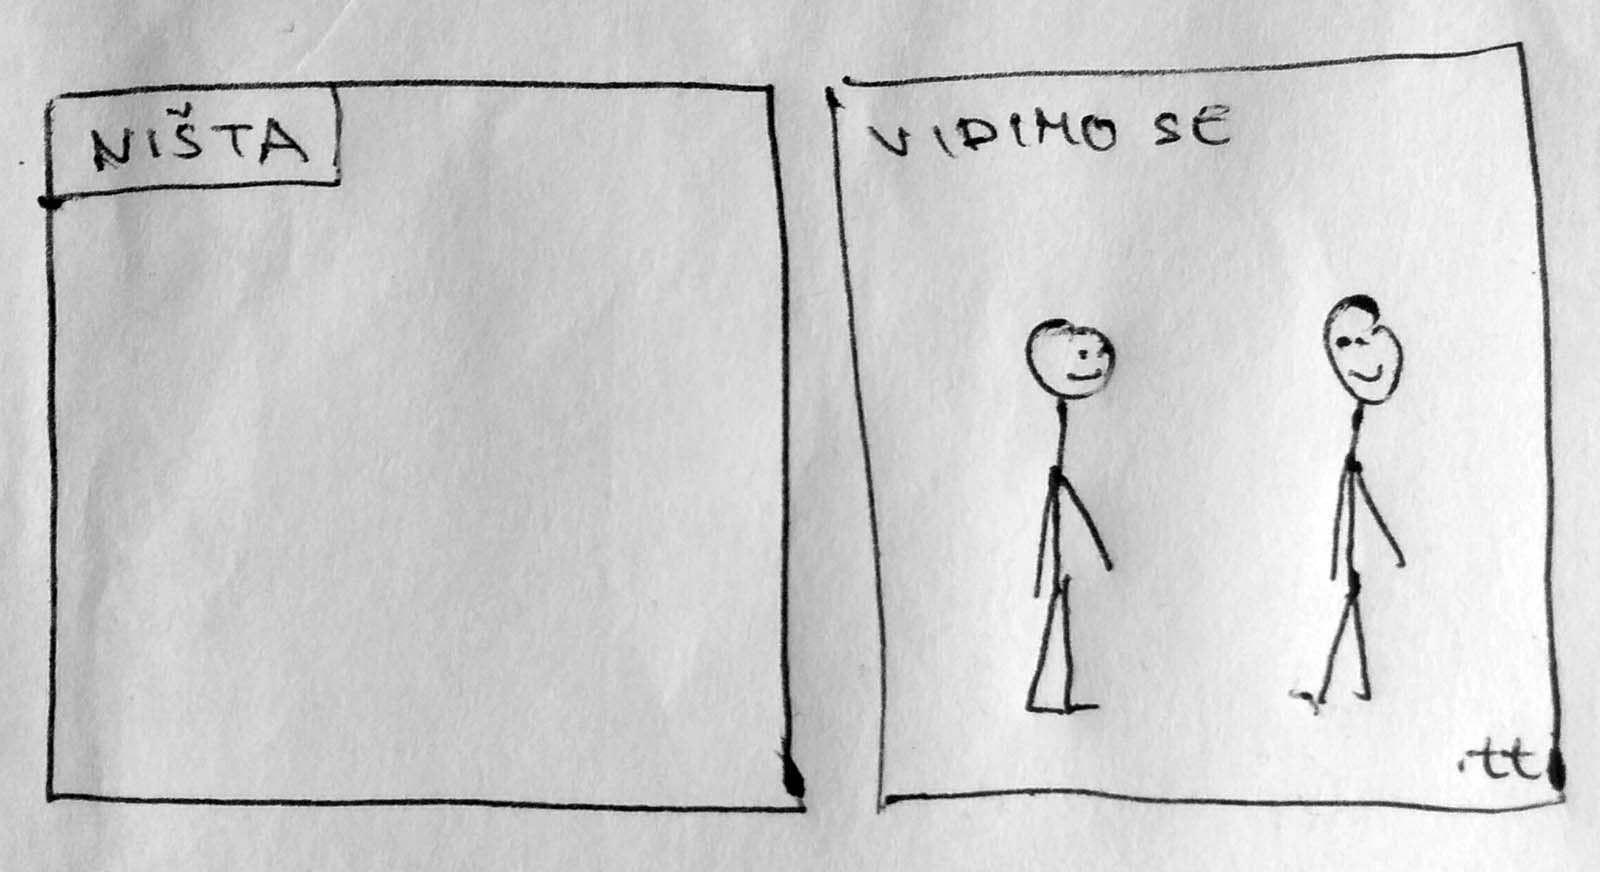 NIŠTA
VIDIMO SE
.tt